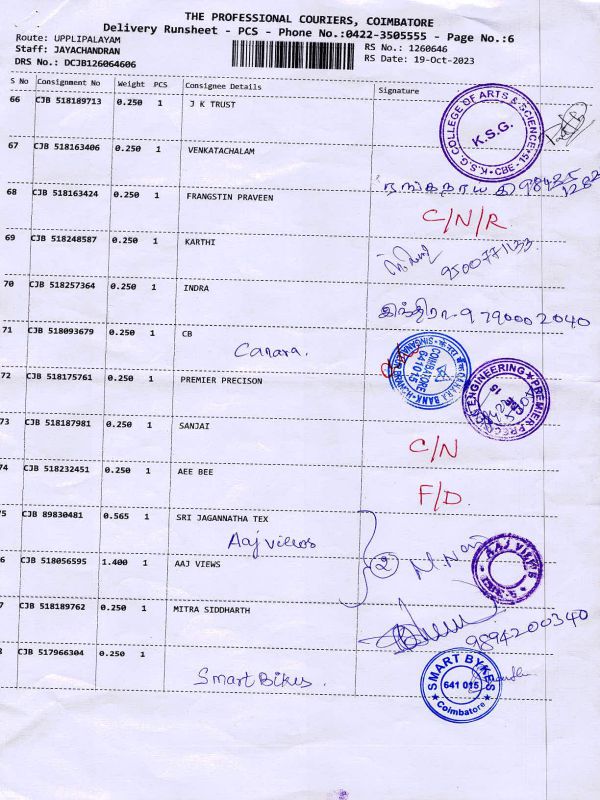 THE PROFESSIONAL COURIERS, COIMBATORE
Delivery Runsheet - PCS - Phone No.:0422-3505555 - Page No.:6
Route: UPPLIPALAYAM
Staff: JAYACHANDRAN
DRS No.: DCJB126064606
RS No.: 1260646
RS Date: 19-Oct-2023
S No Consignment No Weight PCS Consignee Details Signature
66 CJB 518189713 0.250 1 J K TRUST
K.S.G. COLLEGE OF ARTS & SCIENCE
K.S.G.
CBE - 15
67 CJB 518163406 0.250 1 VENKATACHALAM
68 CJB 518163424 0.250 1 FRANGSTIN PRAVEEN
C/N/R
69 CJB 518248587 0.250 1 KARTHI
9500771133
70 CJB 518257364 0.250 1 INDRA
இந்திரா 9790002040
71 CJB 518093679 0.250 1 CB
Canara.
CANARA BANK
COIMBATORE
641015
72 CJB 518175761 0.250 1 PREMIER PRECISON
ENGINEERING ★ PREMIER PRECISION
73 CJB 518187981 0.250 1 SANJAI
C/N
74 CJB 518232451 0.250 1 AEE BEE
F/D.
75 CJB 89830481 0.565 1 SRI JAGANNATHA TEX
Aaj views
6 CJB 518056595 1.400 1 AAJ VIEWS
②
AAJ VIEWS
7 CJB 518189762 0.250 1 MITRA SIDDHARTH
9894200340
CJB 517966304 0.250 1
Smart Bikes.
SMART BYKES
641 015
Coimbatore